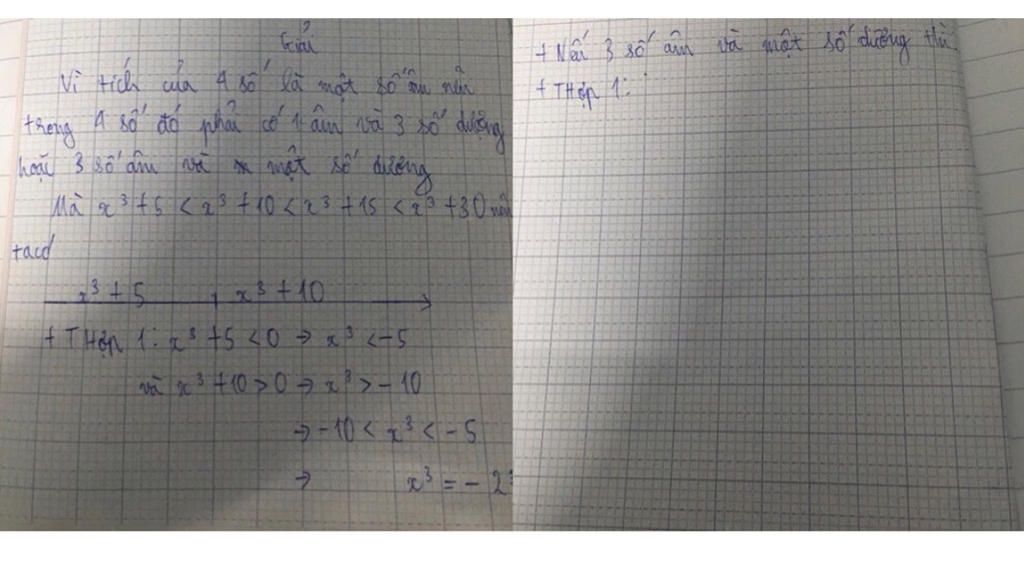 Giải
Vì tích của 4 số là một số âm nên
trong 4 số đó phải có 1 âm và 3 số dương
hoặc 3 số âm và một số dương
Mà x³ + 5 < x³ + 10 < x³ + 15 < x³ + 30 nên
ta có
x³ + 5 x³ + 10
+ THợp 1: x³ + 5 < 0 → x³ < -5
và x³ + 10 > 0 → x³ > -10
→ -10 < x³ < -5
→ x³ = -2³
+ Nếu 3 số âm và một số dương thì
+ THợp 1: